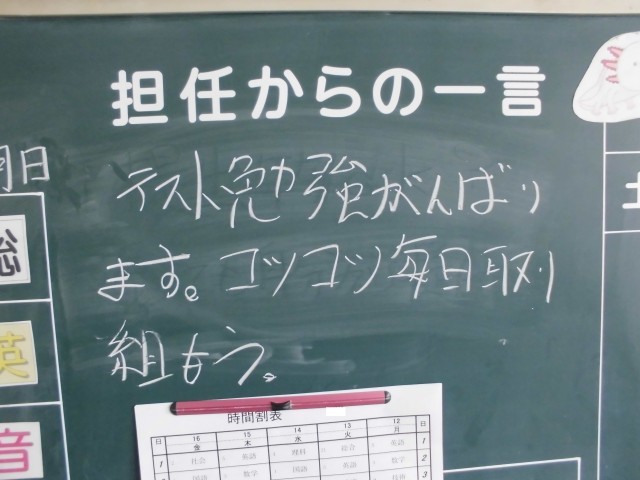 担任からの一言
テスト勉強がんばり
ます。コツコツ毎日取り
組もう。
明日
総
英
音
土
時間割表
日 16 15 14 13 12 日
金 木 水 火 月
1 社会 英語 理科 総合 英語 1
2 数学 国語 英語 数学 2
3